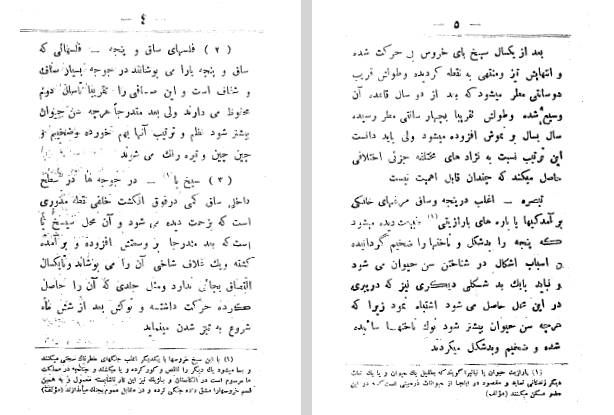 — ٤ —
( ٢ ) فلسهای ساق و پنجه — فلسهائی که
ساق و پنجه پارا می پوشانند در جوجه بسیار صاف
و شفاف است و این صافی را تقریباً تاسالی دوم
محفوظ می دارند ولی بعد متدرجاً هرچه سن حیوان
بیشتر شود نظم و ترتیب آنها بهم خورده وضخیم و
چین چین و تیره رنگ می شوند
( ٣ ) سیخ پا (١) — در جوجه ها در سطح
داخلی ساق کمی درفوق انگشت خلفی نقطه مدوری
است که بزحمت دیده می شود و آن محل سیخ پا
است که بعد متدرجاً بر وسعتش افزوده و برآمده
گشته ویک غلاف شاخی آن را می پوشاند وتایکسال
التصاق بجائی ندارد ومثل جلدی که آن را حاصل
کرده حرکت داشته و نوکش بعد از شش ماه
شروع به تیز شدن مینماید
(١) با این سیخ خروسها با یکدیگر اغلب جنگهای خطرناک سختی میکنند
و بسا میشود یک دیگر را ناقص و کور کرده و یا میکشند و چنانچه در مملکت
ما مرسوم است در انگلستان و بلژیک نیز این کار ناشایسته معمول و به همین
قسم خروسهارا مشق داده جنگی کرده و در مقابل عموم بجنگ میاندازند (مؤلف)
— ٥ —
بعد از یکسال سیخ پای خروس بی حرکت شده
و انتهایش تیز ومنتهی به نقطه گردیده وطولش قریب
دوسانتی مطر میشود که بعد از دو سال قاعده آن
وسیع شده وطولش تقریباً بچهار سانتی مطر رسیده
سال بسال بر نموش افزوده میشود ولی باید دانست
این ترتیب نسبت به نژاد های مختلفه جزئی اختلافی
حاصل میکنند که چندان قابل اهمیت نیست
تبصره — اغلب درپنجه وساق مرغهای خانگی
برآمدگیها یا پاره های پارازیتی (١) دیده میشود
که پنجه را بدشکل و ناخنها را ضخیم گردانیده
و اسباب اشکال در شناختن سن حیوان می شود
و نباید باید به شکلی دیگری نیز که درپیری
در این محل حاصل می شود اشتباه نمود زیرا که
هرچه سن حیوان بیشتر شود نوک ناخنها سائیده
شده و ضخیم وبدشکل میگردند
(١) پارازیت حیوان یا نباتیرا گویند که بطفیل یک حیوان و یا یک نبات
دیگر زندگانی نماید و مقصود در اینجا از حیوانات ذره‌بینی است که در این
عضو مسکن میکنند (مؤلف)